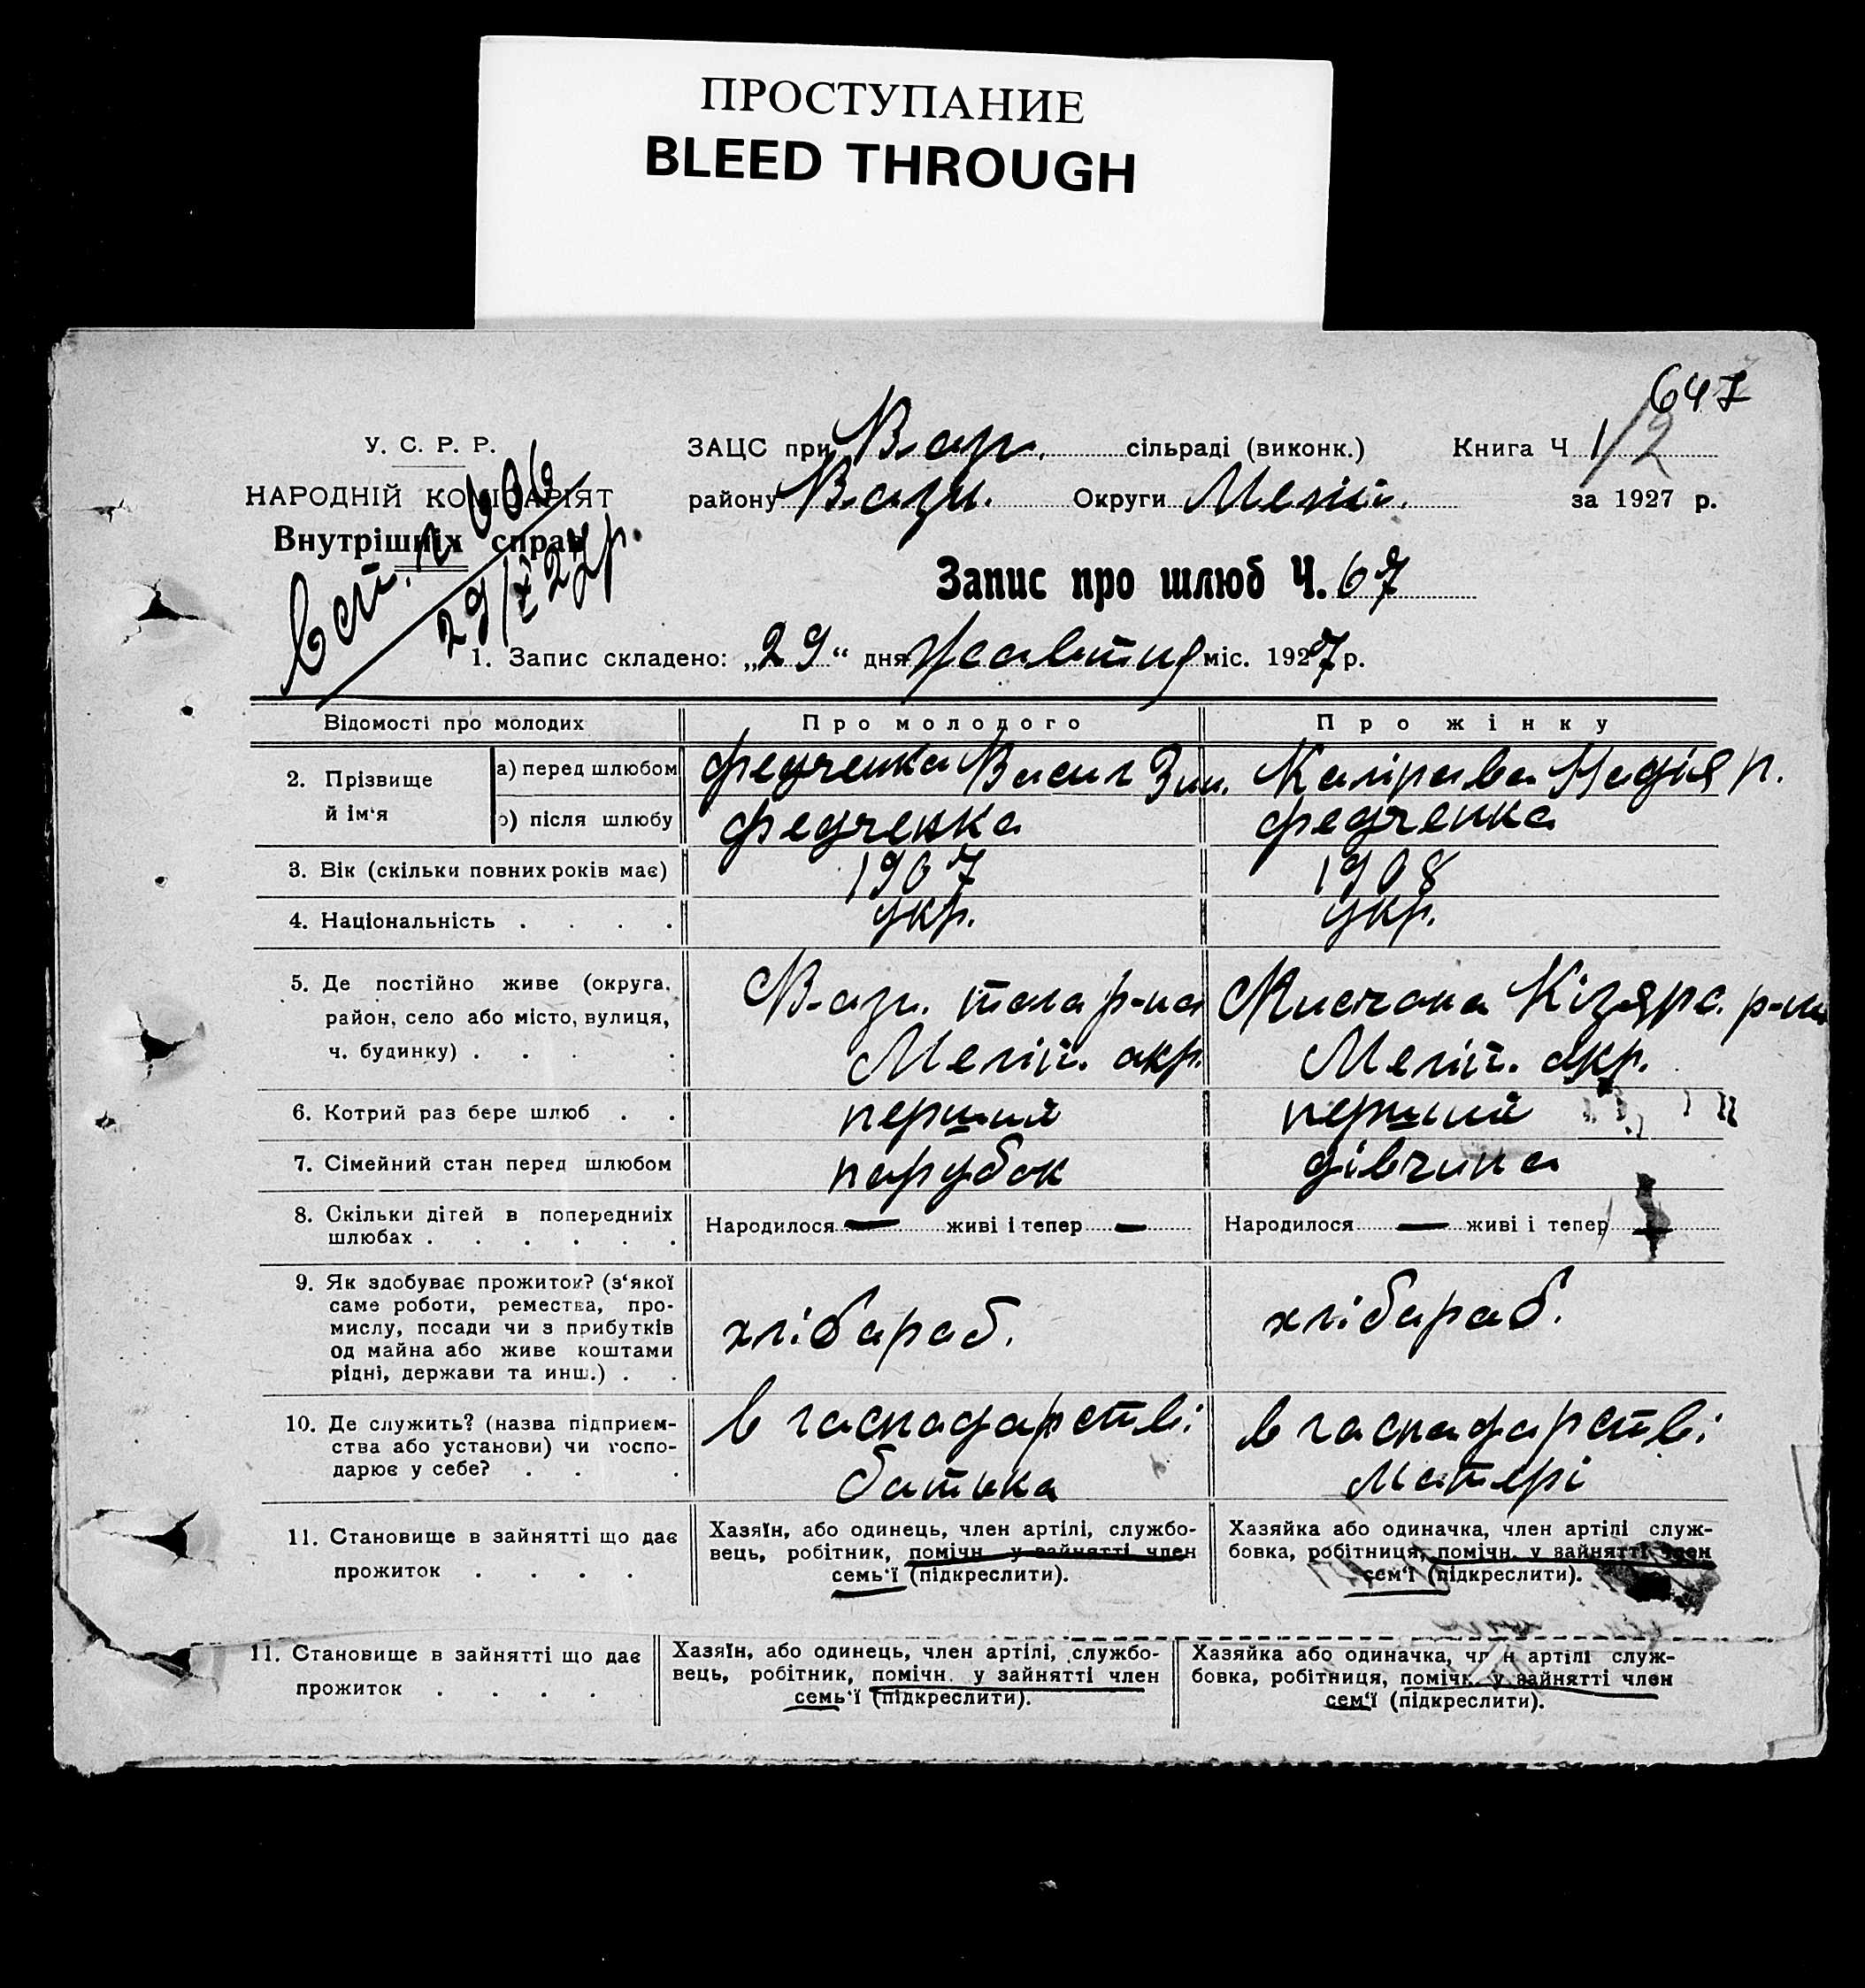 ПРОСТУПАНИЕ
BLEED THROUGH
647
У. С. Р. Р.
НАРОДНІЙ КОМІСАРІЯТ
Внутрішніх справ
ЗАЦС при сільраді (виконк.) Книга Ч 1/2
району Округи Меліт. за 1927 р.
Запис про шлюб Ч. 67
1. Запис складено: „29“ дня жовтня міс. 1927 р.
Відомості про молодих Про молодого Про жінку
2. Прізвище й ім‘я
а) перед шлюбом Федченко Васил Надія П.
б) після шлюбу Федченко Федченко
3. Вік (скільки повних років має) 1907 1908
4. Національність . . . . укр. укр.
5. Де постійно живе (округа,
район, село або місто, вулиця,
ч. будинку) . . . .
р-на
Меліт. окр. Меліт. окр.
6. Котрий раз бере шлюб . . перший перший
7. Сімейний стан перед шлюбом парубок дівчина
8. Скільки дітей в попередниіх
шлюбах . . . . . .
Народилося — живі і тепер — Народилося — живі і тепер —
9. Як здобуває прожиток? (з‘якої
саме роботи, ремества, про-
мислу, посади чи з прибутків
од майна або живе коштами
рідні, держави та инш.) . .
хлібороб. хлібороб.
10. Де служить? (назва підприєм-
ства або установи) чи госпо-
дарює у себе? . . .
в господарстві в господарстві
батька матері
11. Становище в зайнятті що дає
прожиток . . . .
Хазяїн, або одинець, член артілі, службо-
вець, робітник, помічн. у зайнятті член
семь‘ї (підкреслити).
Хазяйка або одиначка, член артілі служ-
бовка, робітниця, помічн. у зайнятті член
сем‘ї (підкреслити).
11. Становище в зайнятті що дає
прожиток . . . .
Хазяїн, або одинець, член артілі, службо-
вець, робітник, помічн. у зайнятті член
семь‘ї (підкреслити).
Хазяйка або одиначка, член артілі служ-
бовка, робітниця, помічн. у зайнятті член
сем‘ї (підкреслити).